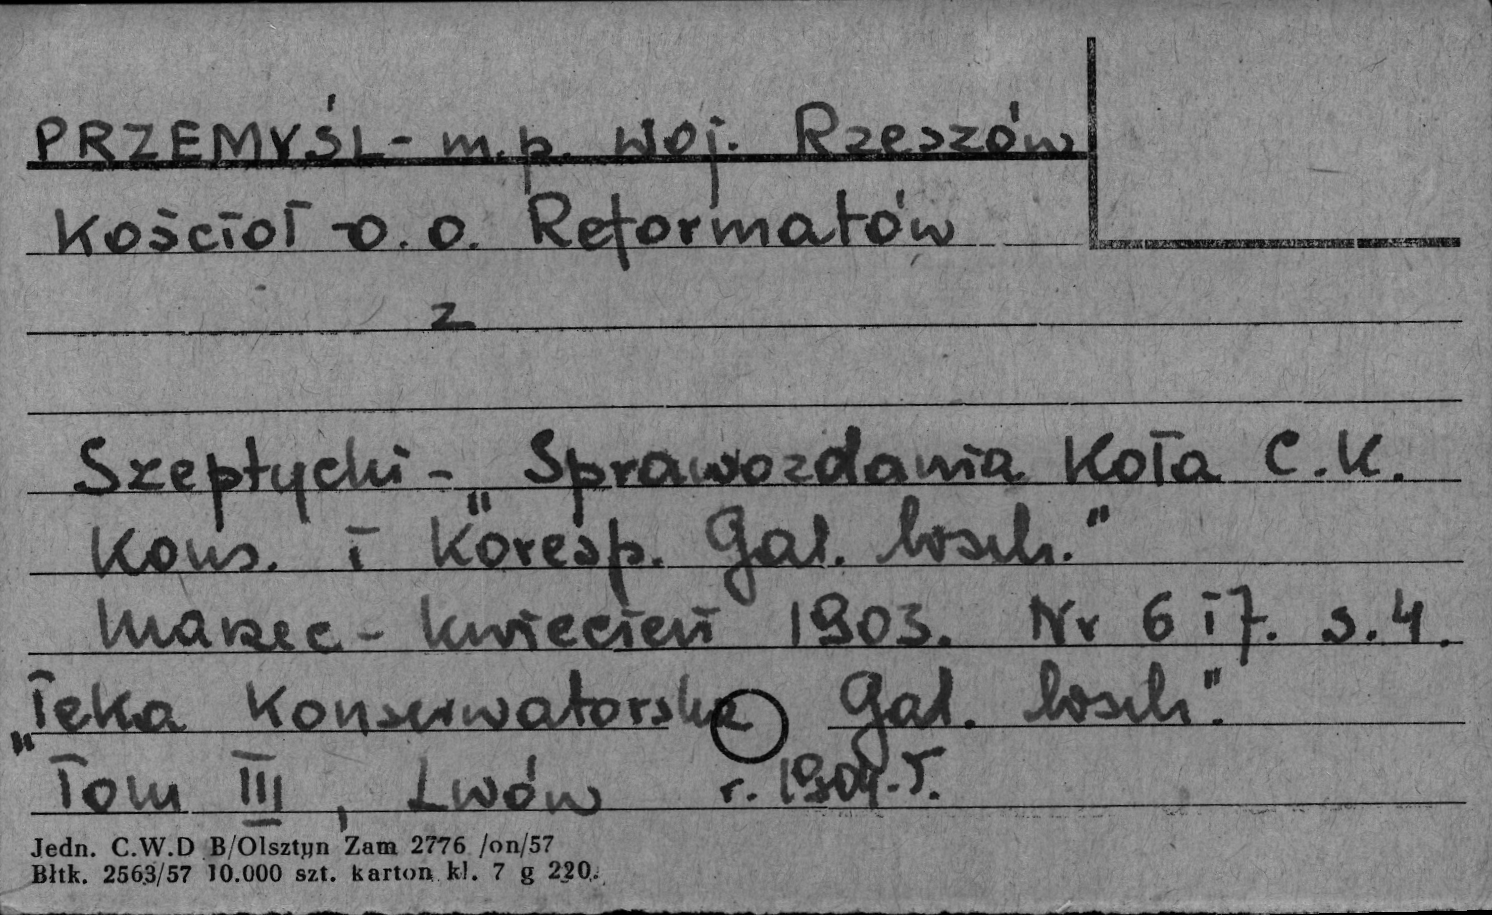 PRZEMYŚL - m.p. woj. Rzeszów
Kościoł o.o. Reformatów
z
Szeptycki - „Sprawozdania Koła C.K.
Kons. i Koresp. Gal. wsch."
Marzec - kwiecień 1903. Nr 6 i 7. s. 4.
„Teka Konserwatorska Gal. wsch".
Tom III, Lwów r. 1904-5.
Jedn. C.W.D B/Olsztyn Zam 2776 /on/57
Błtk. 2563/57 10.000 szt. karton kl. 7 g 220.